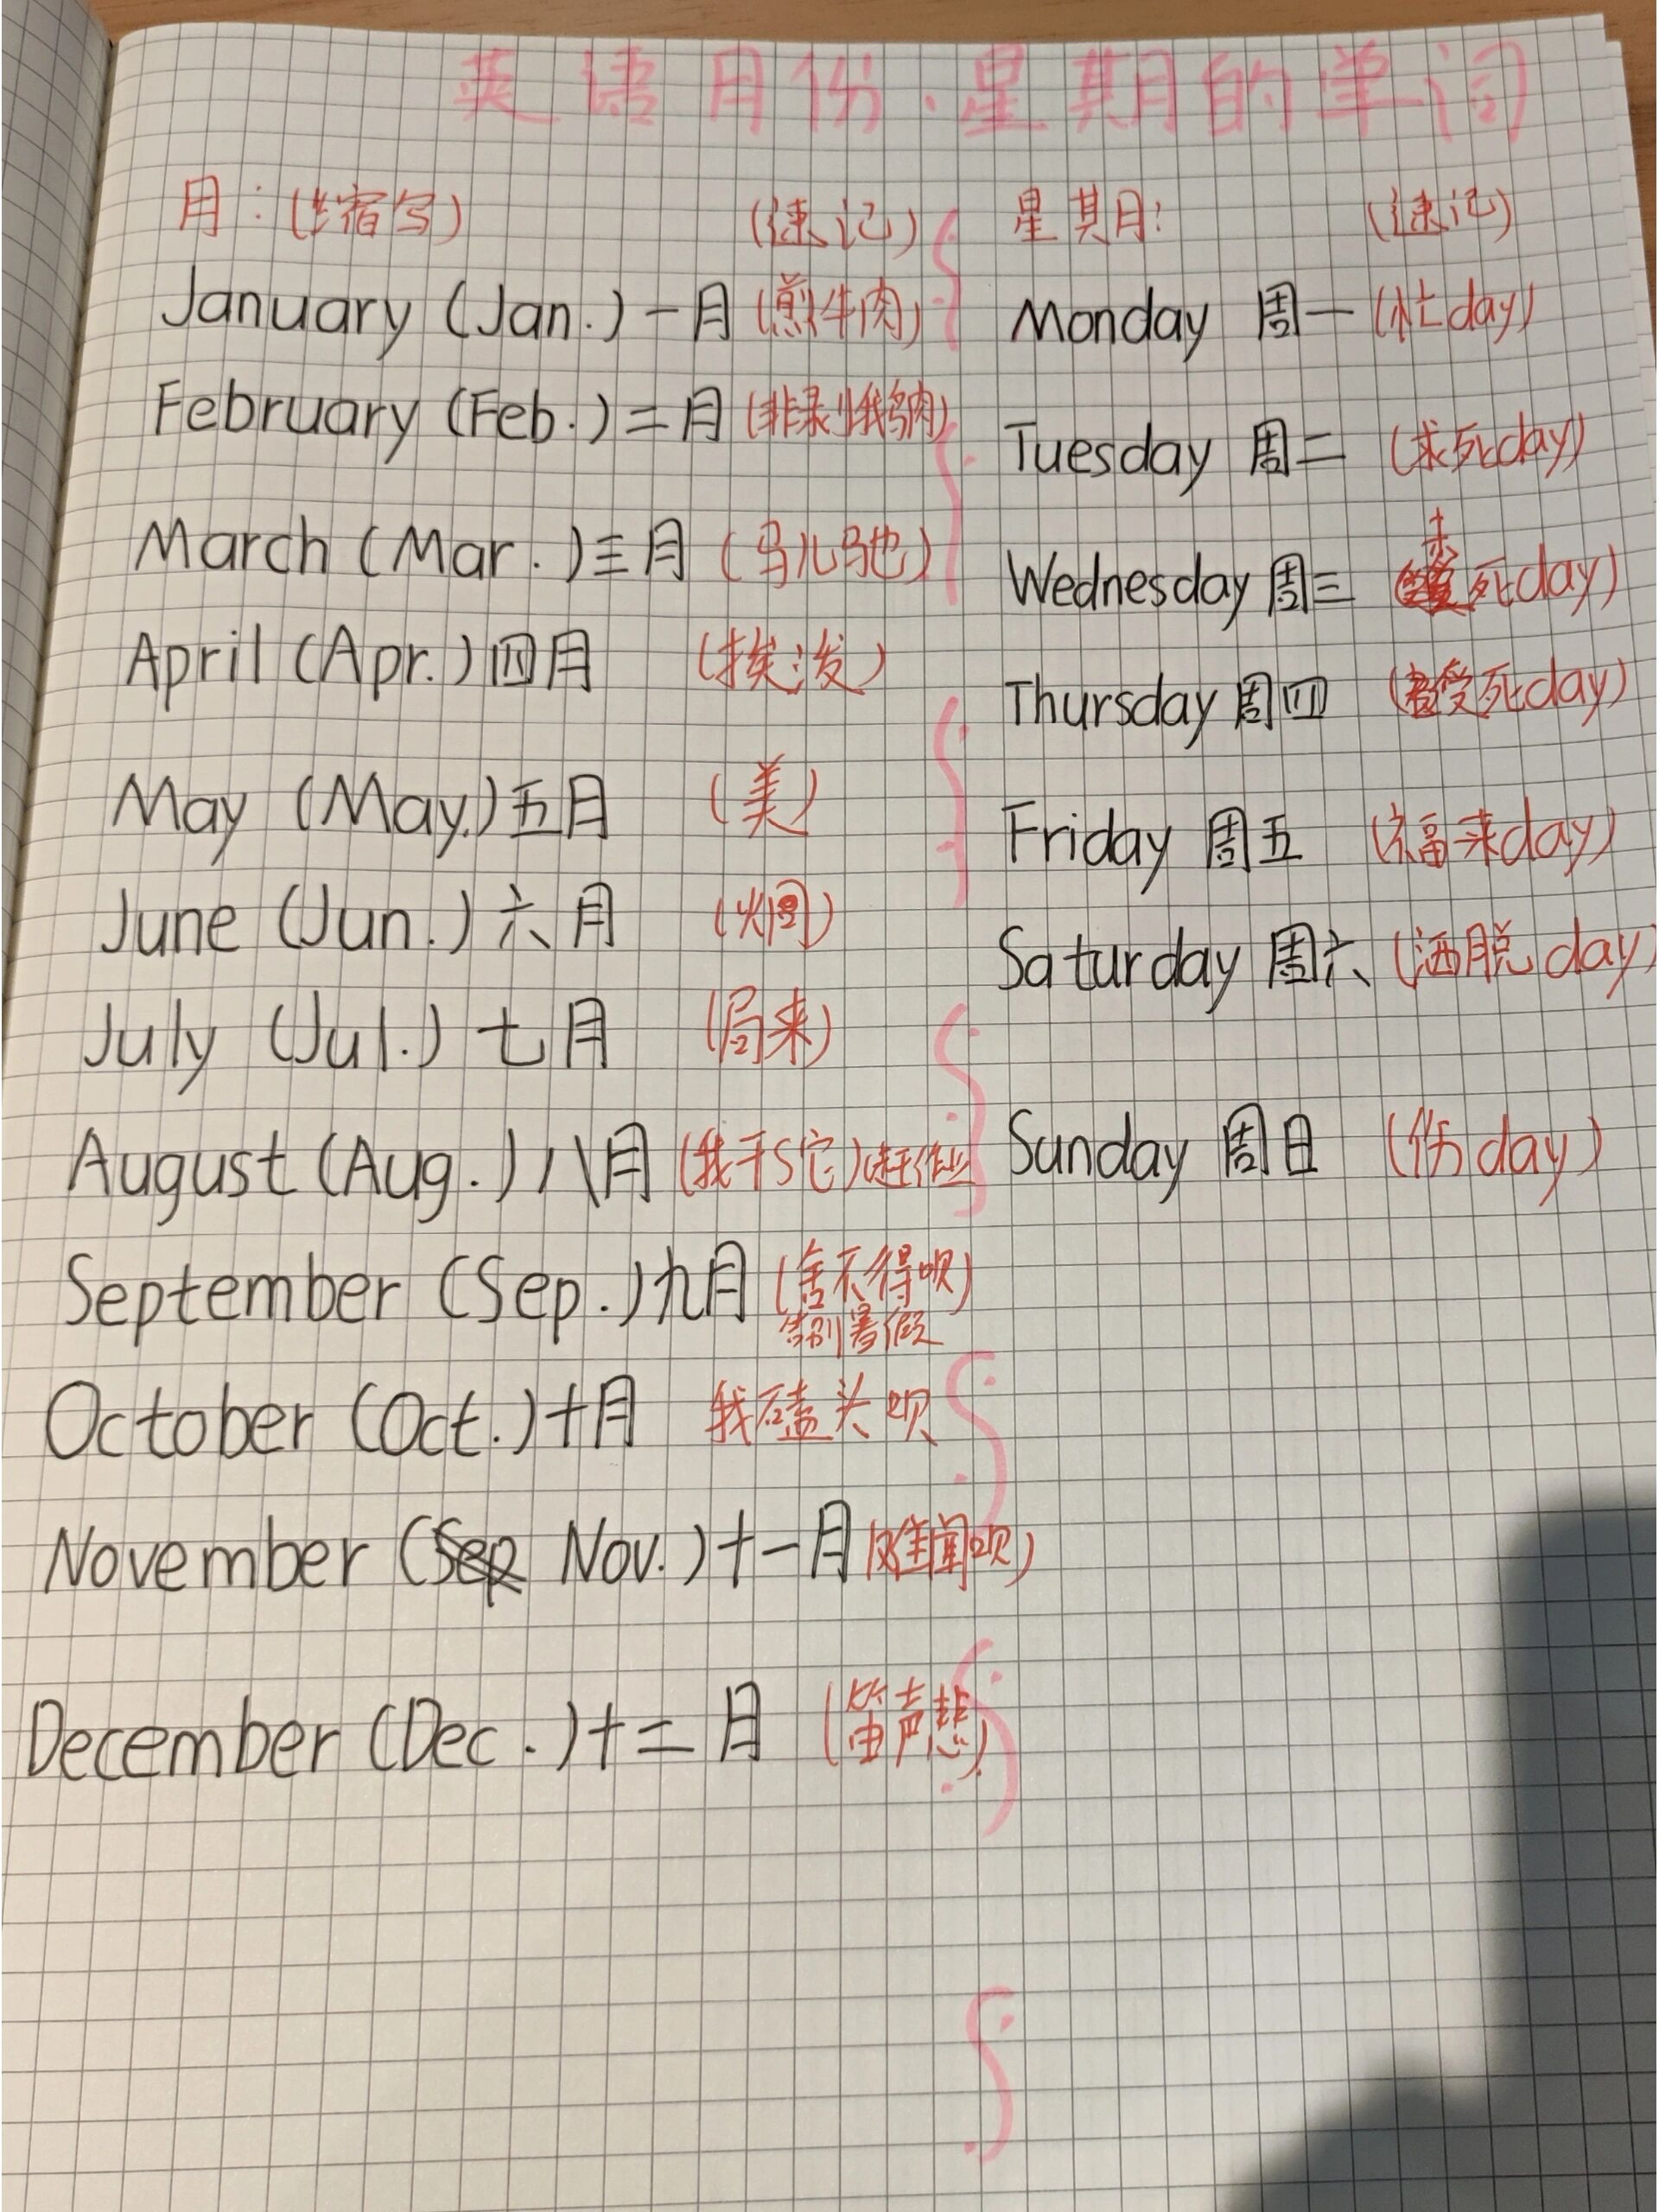 英语月份·星期的单词
月：(缩写) (速记)
January (Jan.) 一月 (煎牛肉)
February (Feb.) 二月
March (Mar.) 三月 (马儿驰)
April (Apr.) 四月 (挨泼)
May (May.) 五月 (美)
June (Jun.) 六月
July (Jul.) 七月 (局来)
August (Aug.) 八月 (我干S它) (赶作业
September (Sep.) 九月 (舍不得呗)
告别暑假
October (Oct.) 十月 我磕头呗
November (Sep Nov.) 十一月 (难闻呗)
December (Dec.) 十二月 (笛声悲)
星期: (速记)
Monday 周一 (忙day)
Tuesday 周二 (求死day)
Wednesday 周三 (未死day)
Thursday 周四 (受死day)
Friday 周五 (福来day)
Saturday 周六 (洒脱day)
Sunday 周日 (伤day)